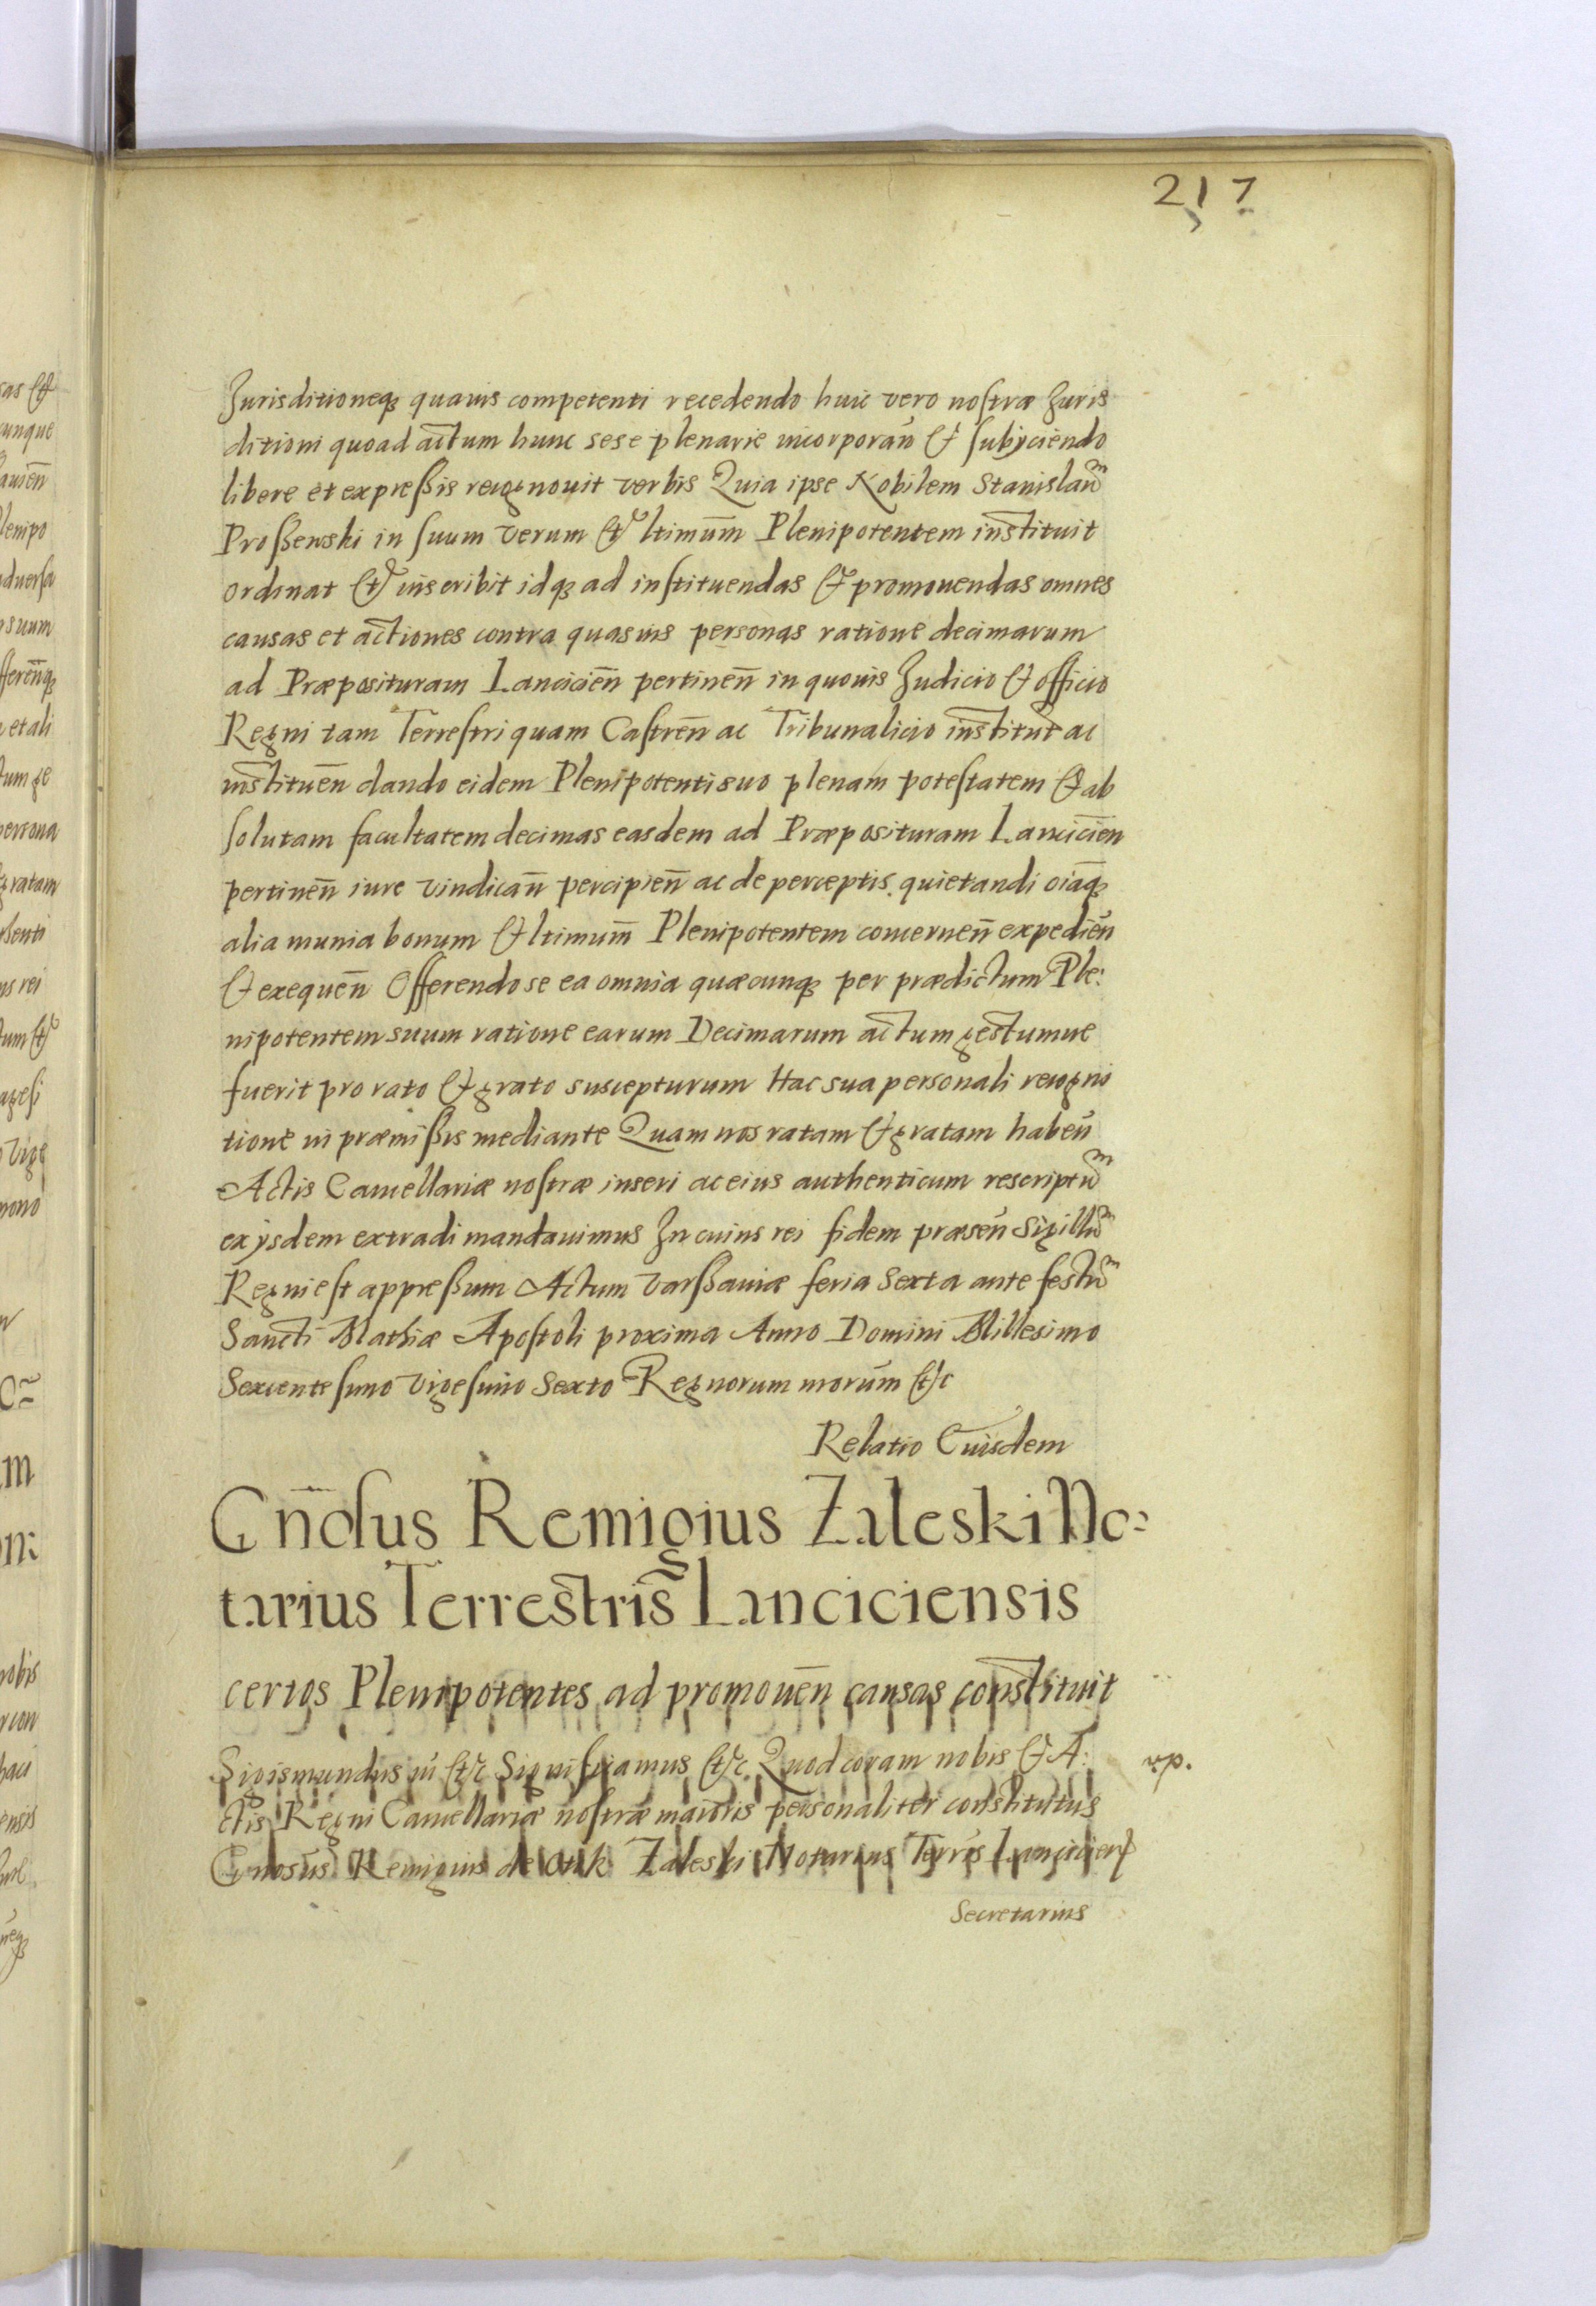 217
Jurisditioneq₃ quauis competenti recedendo huic vero nostræ Juris
ditioni quoad actum hunc sese plenarie incorporan̄ & subyciendo
libere et expressis recognouit verbis Quia ipse Nobilem Stanislaū
Proszewski in suum verum & ltimum̄ Plenipotentem instituit
ordinat & inscribit idq₃ ad instituendas & promouendas omnes
causas et actiones contra quasuis personas ratione decimarum
ad Præposituram Lancicien̄ pertinen̄ in quouis Judicio & officio
Regni tam Terrestri quam Castren̄ ac Tribunalicio institut̄ ac
instituen̄ dando eidem Plenipotenti suo plenam potestatem & ab
solutam facultatem decimas easdem ad Præposituram Lancicien̄
pertinen̄ iure vindican̄ percipien̄ ac de perceptis quietandi oiaq̄₃
alia munia bonum & ltimum̄ Plenipotentem concernen̄ expedien̄
& exequen̄ Offerendo se ea omnia quæcunq₃ per prædictum Ple:
nipotentem suum ratione earum Decimarum actum gestumue
fuerit pro rato & grato suscepturum Hac sua personali recogni
tione in præmissis mediante Quam nos ratam & gratam haben̄
Actis Cancellariæ nostræ inseri ac eius authenticum rescriptū
ex ysdem extradi mandauimus In cuius rei fidem præsen̄ Sigillū
Regni est appressum Actum Varssauiæ feria Sexta ante festū
Sancti Mathiæ Apostoli proxima Anno Domini Millesimo
Sexcentesimo Vigesimo Sexto Regnorum nrorum̄ &c
Relatio Euisdem
Gn̄dsus Remigius Zaleski No:
tarius Terrestris Lanciciensis
certos Plenipotentes ad promouen̄ causas constituit
Sigismundus iii &c Significamus &c Quod coram nobis & A:
ctis Regni Cancellariæ nostræ maioris personaliter constitutus
Gnosus Remigius de Otok Zaleski Notarius Terris Lanciciens
Secretarius